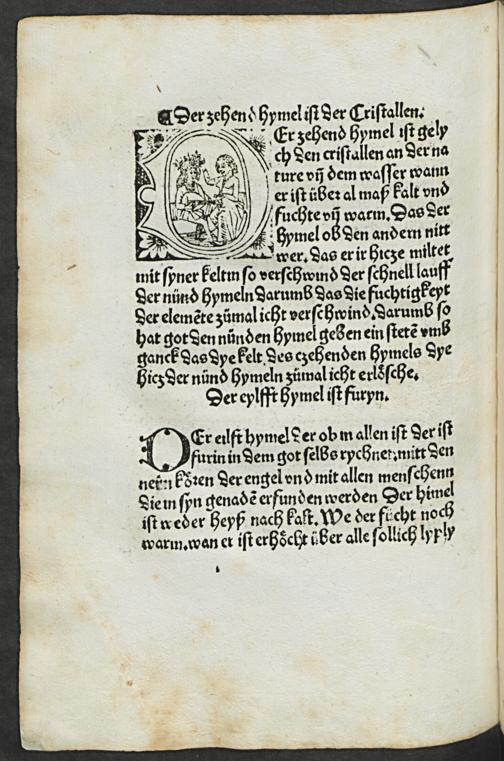 Der zehend hymel ist der Cristallen.
DEr zehend hymel ist gely
ch den cristallen an der na
ture vn̄ dem wasser wann
er ist über al maß kalt vnd
fuchte vn̄ warm. Das der
hymel ob den andern nitt
wer. das er ir hicze miltet
mit syner keltin so verschwind der schnell lauff
der nünd hymeln darumb das die fuchtigkeyt
der elemēte zümal icht verschwind. darumb so
hat got den nünden hymel geben ein stetē vmb
ganck das dye kelt. des czehenden hymels dye
hicz der nünd hymeln zümal icht erlösche.
Der eylfft hymel ist furyn.
DEr eilft hymel der ob in allen ist der ist
furin in dem got selbs rychnet. mitt den
neün kören der engel vnd mit allen menschenn
die in syn genadē erfunden werden Der himel
ist weder heyß nach kalt. We der fücht noch
warm. wan er ist erhöcht über alle sollich lyply